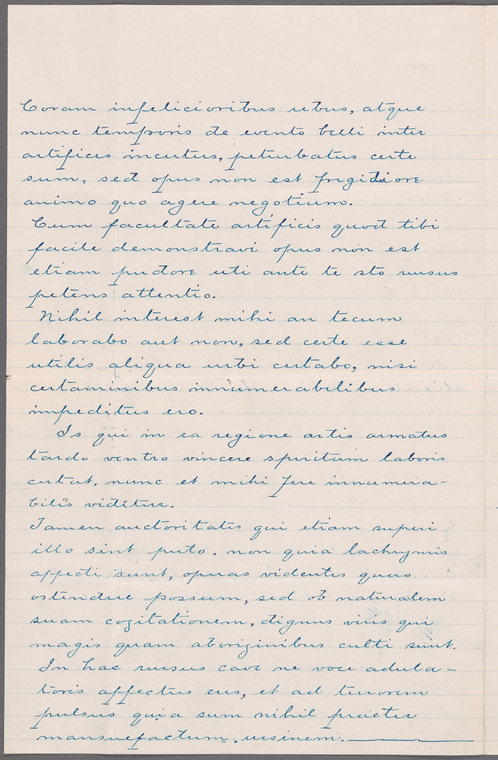 Coram infelicioribus rebus, atque
nunc temporis de evento belli inter
artifices incertus, perturbatus certe
sum, sed opus non est frigidiore
animo quo agere negotium.
Cum facultate artificis quod tibi
facile demonstravi opus non est
etiam pudore uti ante te sto rursus
petens attentio.
Nihil interest mihi an tecum
laborabo aut non, sed certe esse
utilis aliqua urbi certabo, nisi
certaminibus innumerabilibus
impeditus ero.
Is qui in ea regione artis armatus
tardo ventro vincere spiritum laboris
certat, nunc et mihi fere innumera-
bilis viditur.
Tamen auctoritates qui etiam superi
illo sint puto. non quia lachrymis
affecti sunt, operas videntes quas
ostendere possum, sed ob naturalem
suam cogitationem, dignus viris qui
magis quam aboriginibus culti sunt.
In hac rursus cave ne voce adula-
toris affectus eris, et ad terrorem
pulsus quia sum nihil praeter
mansuefactum ursinem.